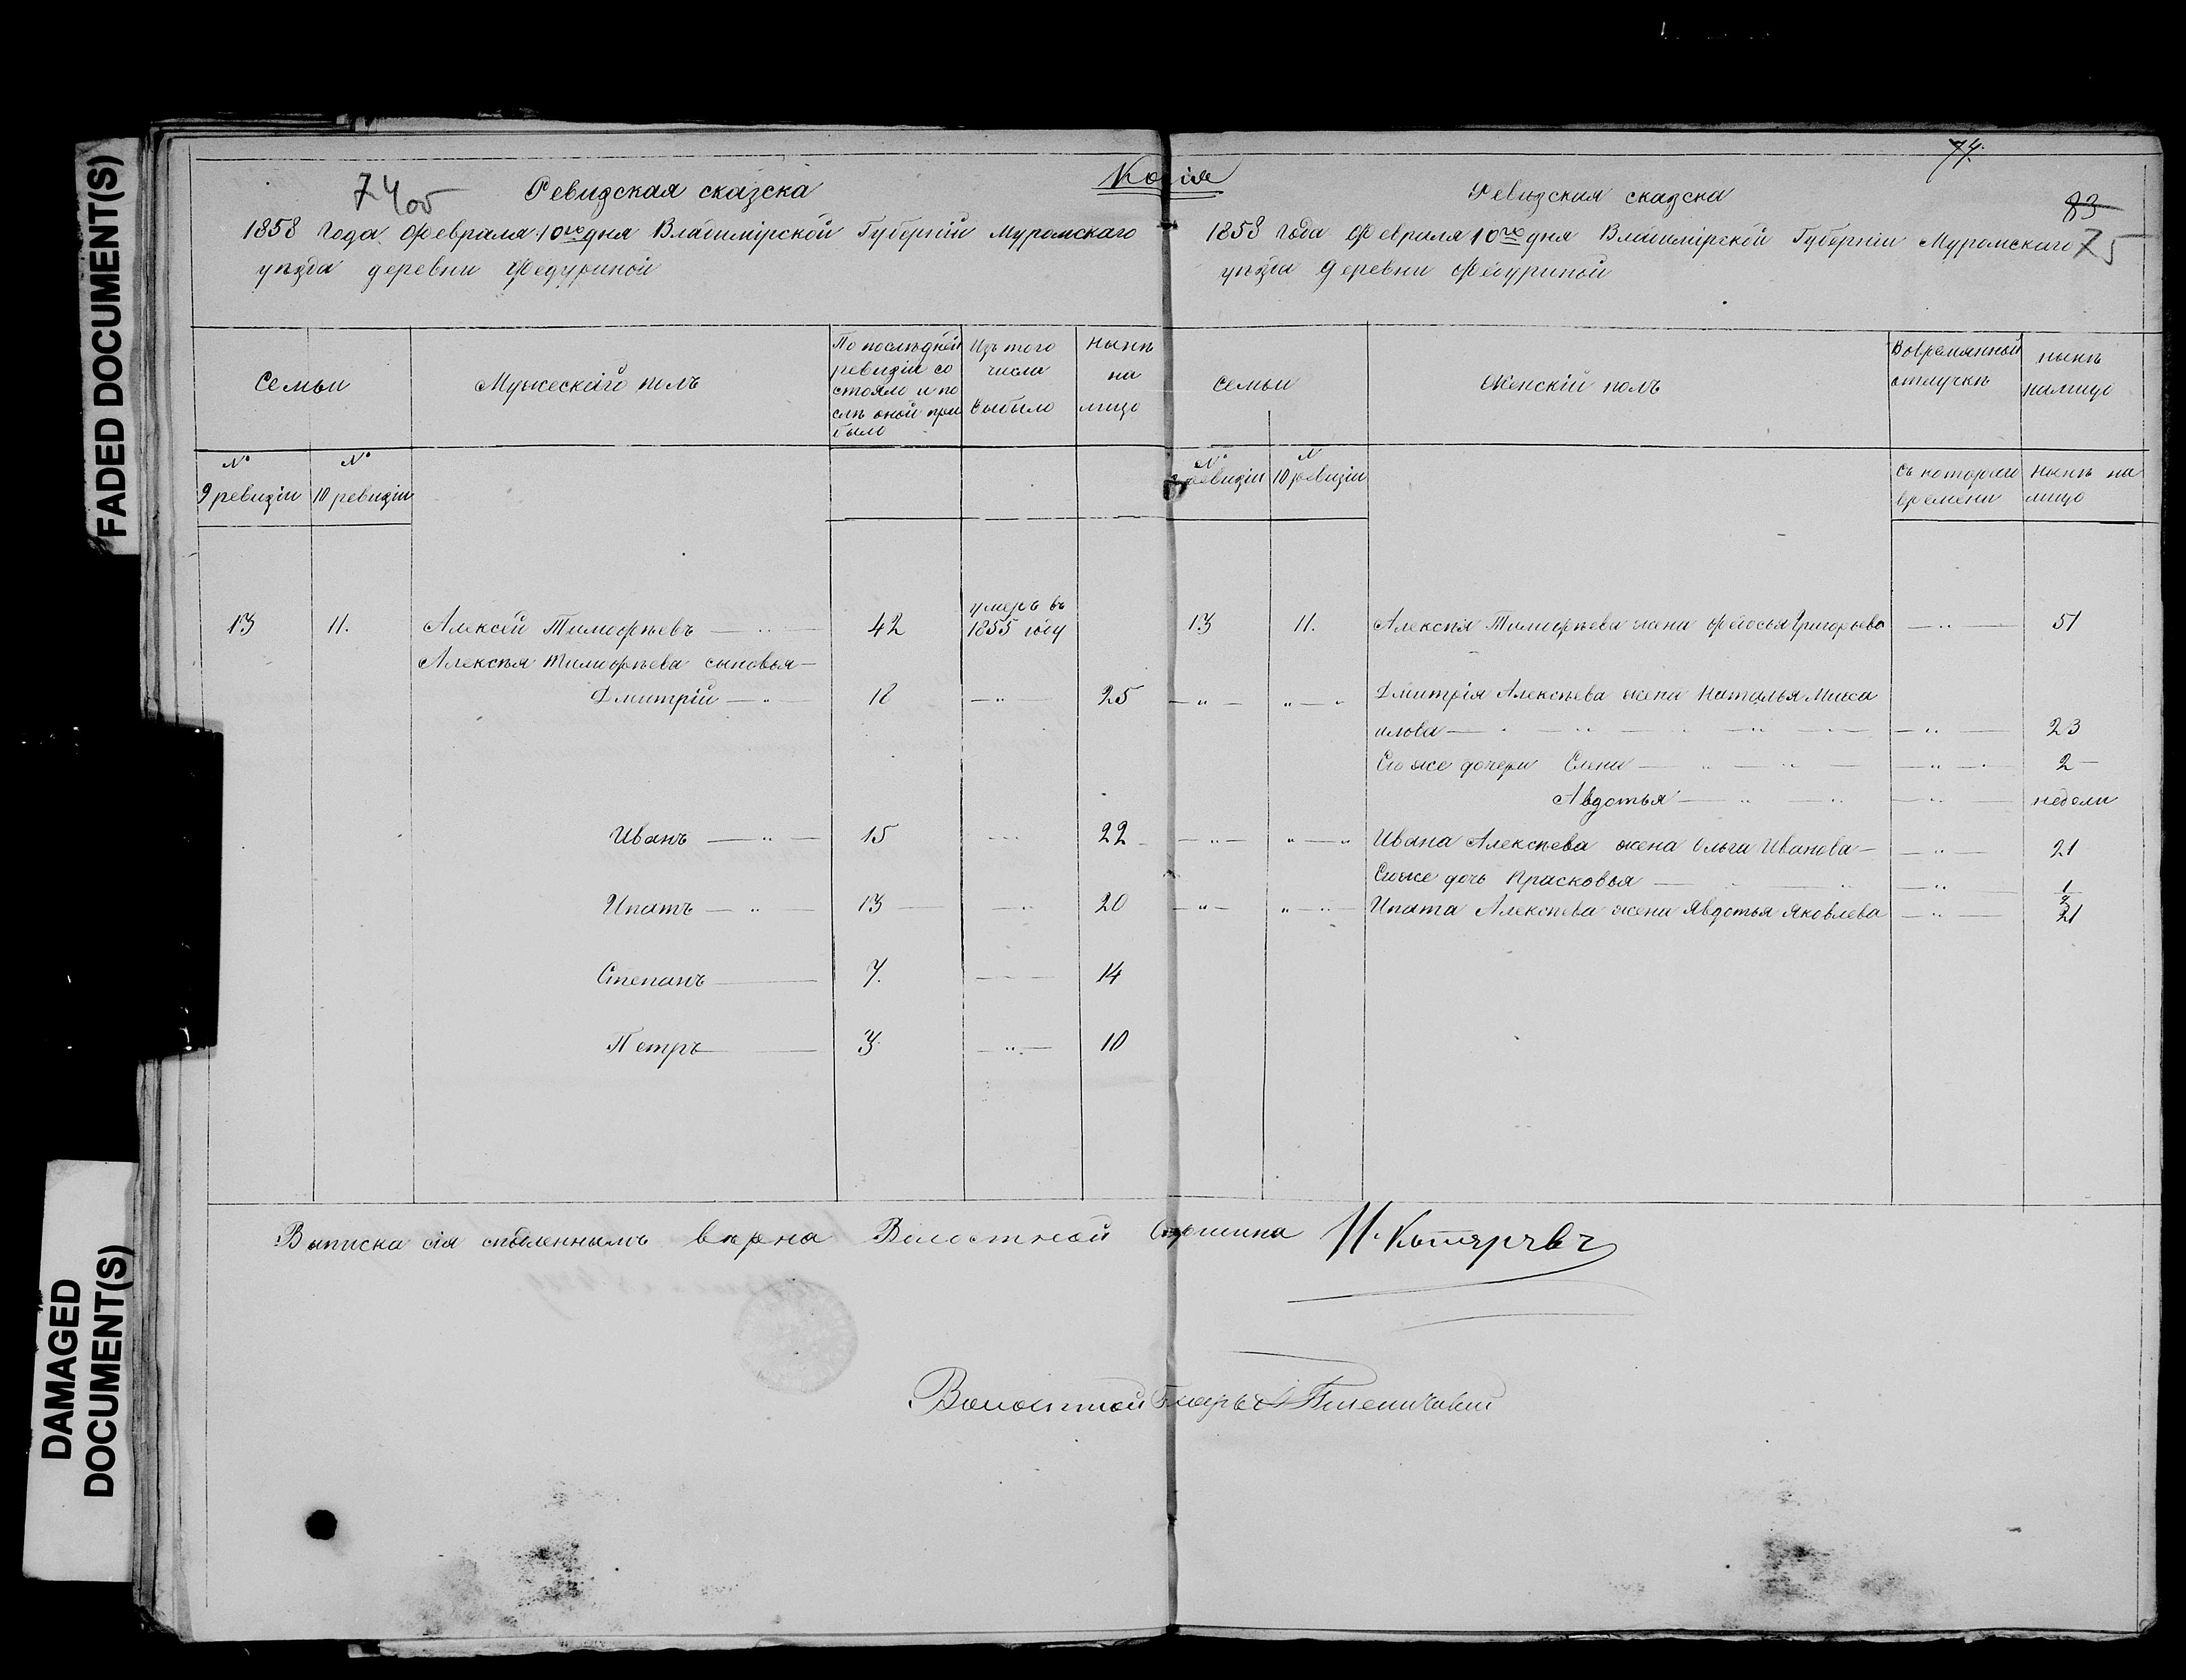 FADED DOCUMENT(S)
DAMAGED
DOCUMENT(S)
Копія
74об
Ревизская сказска
1858 года Февраля 10го дня Владимірской Губерніи Муромскаго
уѣзда деревни Федуриной
Семьи
Мужескій полъ
По послѣдней
ревизіи со
стояло и по
слѣ оной при
было
Изъ того
числа
выбыло
Нынѣ
на
лицо
№
9 ревизіи
№
10 ревизіи
13 11. Алексѣй Тимофѣевъ — 42 умеръ въ
1855 году
Алексѣя Тимофѣева сыновья —
Дмитрій — " — 18 — " — 25
Иванъ — " — 15 22
Ипатъ — " — 13 20
Степанъ — 7. 14
Петръ — 3 — " — 10
74.
83
75
Ревизская сказска
1858 года Февраля 10го дня Владимірской Губерніи Муромскаго
уѣзда деревни Федуриной
Семьи
Женскій полъ
Вовремянной
отлучкѣ
нынѣ
налицо
№
9 ревизіи
N
10 ревизіи
Съ котораго
времени
нынѣ на
лицо
13 11. Алексѣя Тимофѣева жена Федосья Григорьева — " — 51
— " — " — " Дмитрія Алексѣева жена Наталья Миха
илова — — " — 23
Его же дочери Елена — — " — 2 —
Авдотья — — " — недели
— " — " — " Ивана Алексѣева жена Ольга Иванова — — " — 21
Его же дочь Прасковья — — " — 1/2
— " — " — " — Ипата Алексѣева жена Авдотья Яковлева — " — 21
Выписка сія съ подленнымъ вѣрна Волостной Старшина
Волостной Писарь